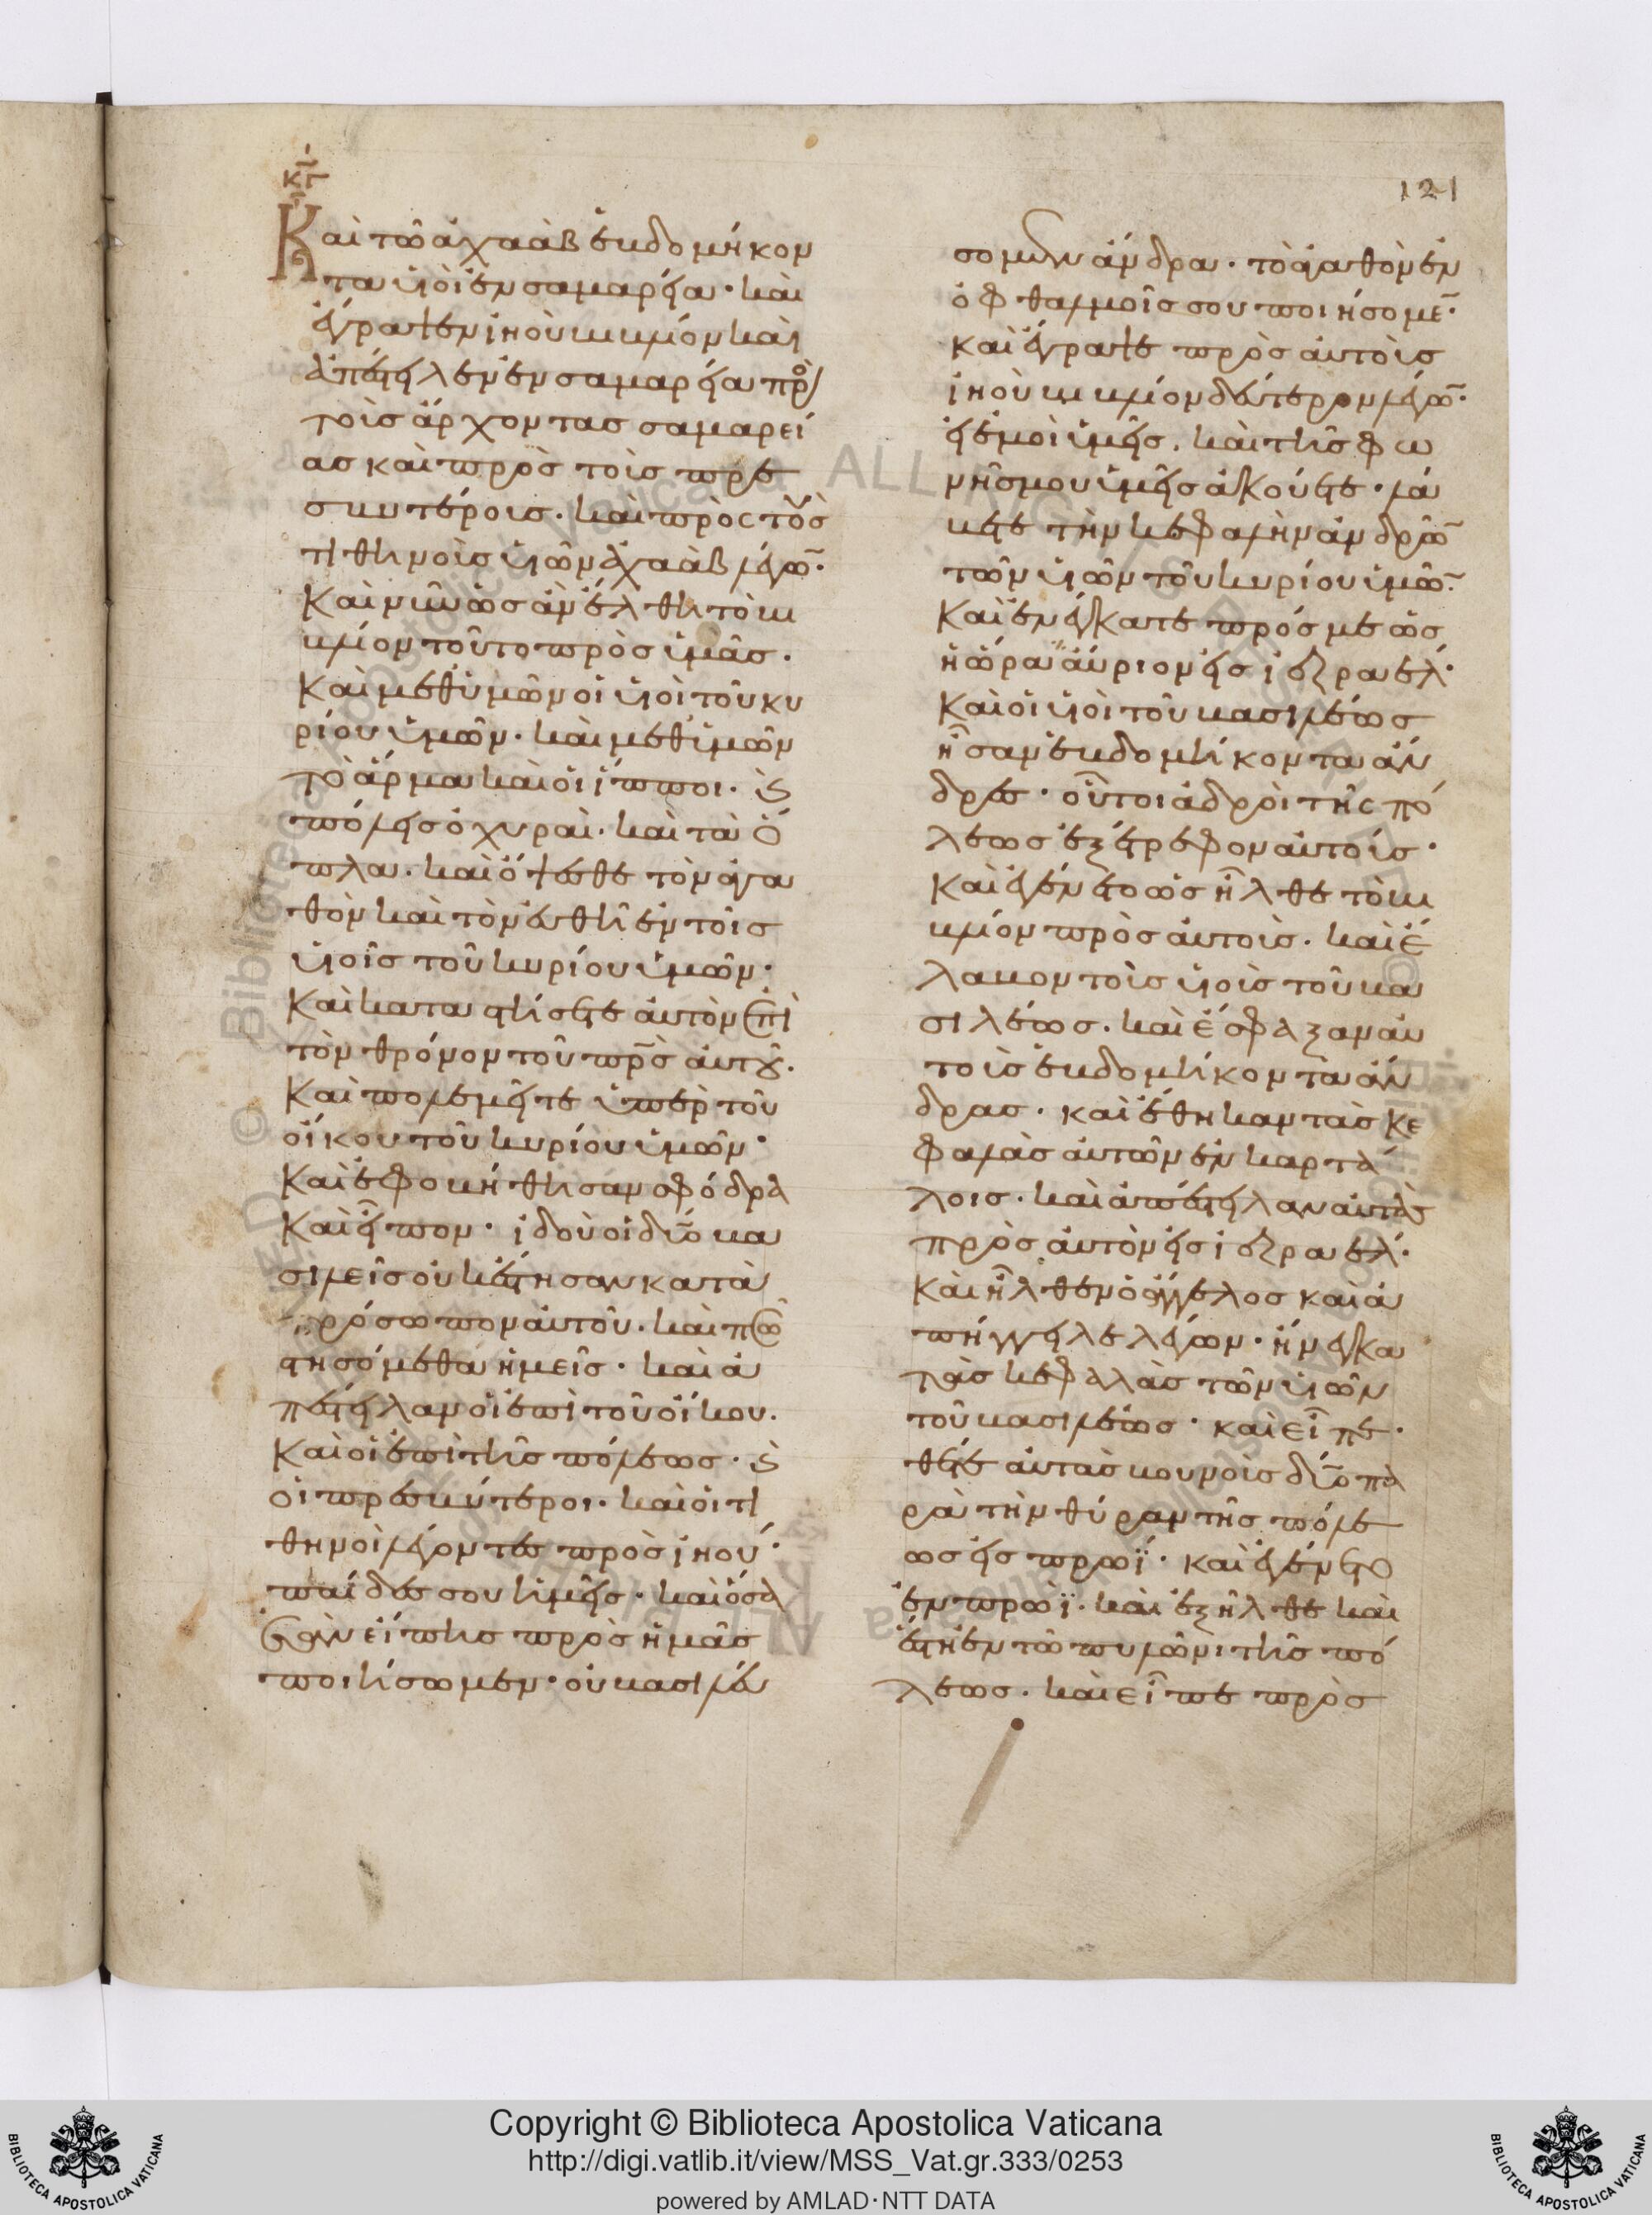 121
κτ
Καὶ τῶ ἀχαὰβ ἑβδομήκον
τα υἱοὶ ἐν σαμαρεία· καὶ
ἔγραψεν ἰηοὺ βιβλίον καὶ
ἀπέστειλεν ἐν σαμαρεία πρὸ
τοὺς ἄρχοντας σαμαρεί
ας καὶ πρὸς τοὺς πρε
σβυτέρους· καὶ πρὸς τοὺς
τιθηνοὺς υἱῶν ἀχαὰβ λέγω̅·
Καὶ νῦν ὡς ἂν ἔλθη τὸ βι
βλίον τοῦτο πρὸς ὑμᾶς·
Καὶ μεθ' ὑμῶν οἱ υἱοὶ τοῦ κυ
ρίου ὑμῶν· καὶ μεθ' ὑμῶν
τὸ ἅρμα καὶ οἱ ἵπποι· ϗ
πόλεις ὀχυραὶ· καὶ τὰ ὅ
πλα· καὶ ὄψεσθε τὸν ἀγα
θὸν καὶ τὸν εὐθῆ ἐν τοῖς
υἱοῖς τοῦ κυρίου ὑμῶν·
Καὶ καταστήσετε αὐτὸν ἐπὶ
τὸν θρόνον τοῦ πρ̅ς αὐτοῦ·
Καὶ πολεμεῖτε ὑπὲρ τοῦ
οἴκου τοῦ κυρίου ὑμῶν·
Καὶ ἐφοβήθησαν σφόδρα
Καὶ εἶπον· ἰδοὺ οἱ δύο βα
σιλεῖς οὐκ ἔστησαν κατὰ
πρόσωπον αὐτοῦ· καὶ πῶ
στησόμεθα ἡμεῖς· καὶ ἀ
πέστειλαν οἱ ἐπὶ τοῦ οἴκου·
Καὶ οἱ ἐπὶ τῆς πόλεως· ϗ
οἱ πρεσβύτεροι· καὶ οἱ τι
θηνοὶ λέγοντες πρὸς ἰηού·
παῖδές σου ἡμεῖς· καὶ ὅσα
ἐὰν εἴπης πρὸς ἡμᾶς
ποιήσωμεν· οὐ βασιλεύ
σομεν ἄνδρα· τὸ ἀγαθὸν ἐν
ὀφθαλμοῖς σου ποιήσομε̅·
καὶ ἔγραψε πρὸς αὐτοὺς
ἰηοὺ βιβλίον δεύτερον λέγω̅·
εἰ ἐμοὶ ὑμεῖς· καὶ τῆς φω
νῆς μου ὑμεῖς ἀκούετε· λά
βετε τὴν κεφαλὴν ἀνδρῶ̅
τῶν υἱῶν τοῦ κυρίου ὑμῶ̅·
Καὶ ἐνέγκατε πρός με ὡς
ἡ ὥρα αὔριον εἰς ἰεζραελ·
Καὶ οἱ υἱοὶ τοῦ βασιλέως
ἦσαν ἑβδομήκοντα ἄν
δρες· οὗτοι ἁδροὶ τῆς πό
λεως ἐξέτρεφον αὐτούς·
Καὶ ἐγένετο ὡς ἦλθε τὸ βι
βλίον πρὸς αὐτοὺς· καὶ ἔ
λαβον τοὺς υἱοὺς τοῦ βα
σιλέως· καὶ ἔσφαξαν αὐ
τοὺς ἑβδομήκοντα ἄν
δρας· καὶ ἔθηκαν τὰς κε
φαλὰς αὐτῶν ἐν καρτά
λοις· καὶ ἀπέστειλαν αὐτὰς
πρὸς αὐτὸν εἰς ἰεζραελ·
Καὶ ἦλθεν ὁ ἄγγελος καὶ ἀ
πήγγειλε λέγων· ἤνεγκα
τὰς κεφαλὰς τῶν υἱῶν
τοῦ βασιλέως· καὶ εἶπε·
θέτε αὐτὰς βουνοὺς δύο πα
ρὰ τὴν θύραν τῆς πόλε
ως εἰς πρωῒ· καὶ ἐγένετο
ἐν πρωῒ· καὶ ἐξῆλθε καὶ
ἔστη ἐν τῶ πυλῶνι τῆς πό
λεως· καὶ εἶπε πρὸς
Copyright © Biblioteca Apostolica Vaticana
http://digi.vatlib.it/view/MSS_Vat.gr.333/0253
powered by AMLAD·NTT DATA
BIBLIOTECA APOSTOLICA VATICANA
BIBLIOTECA APOSTOLICA VATICANA